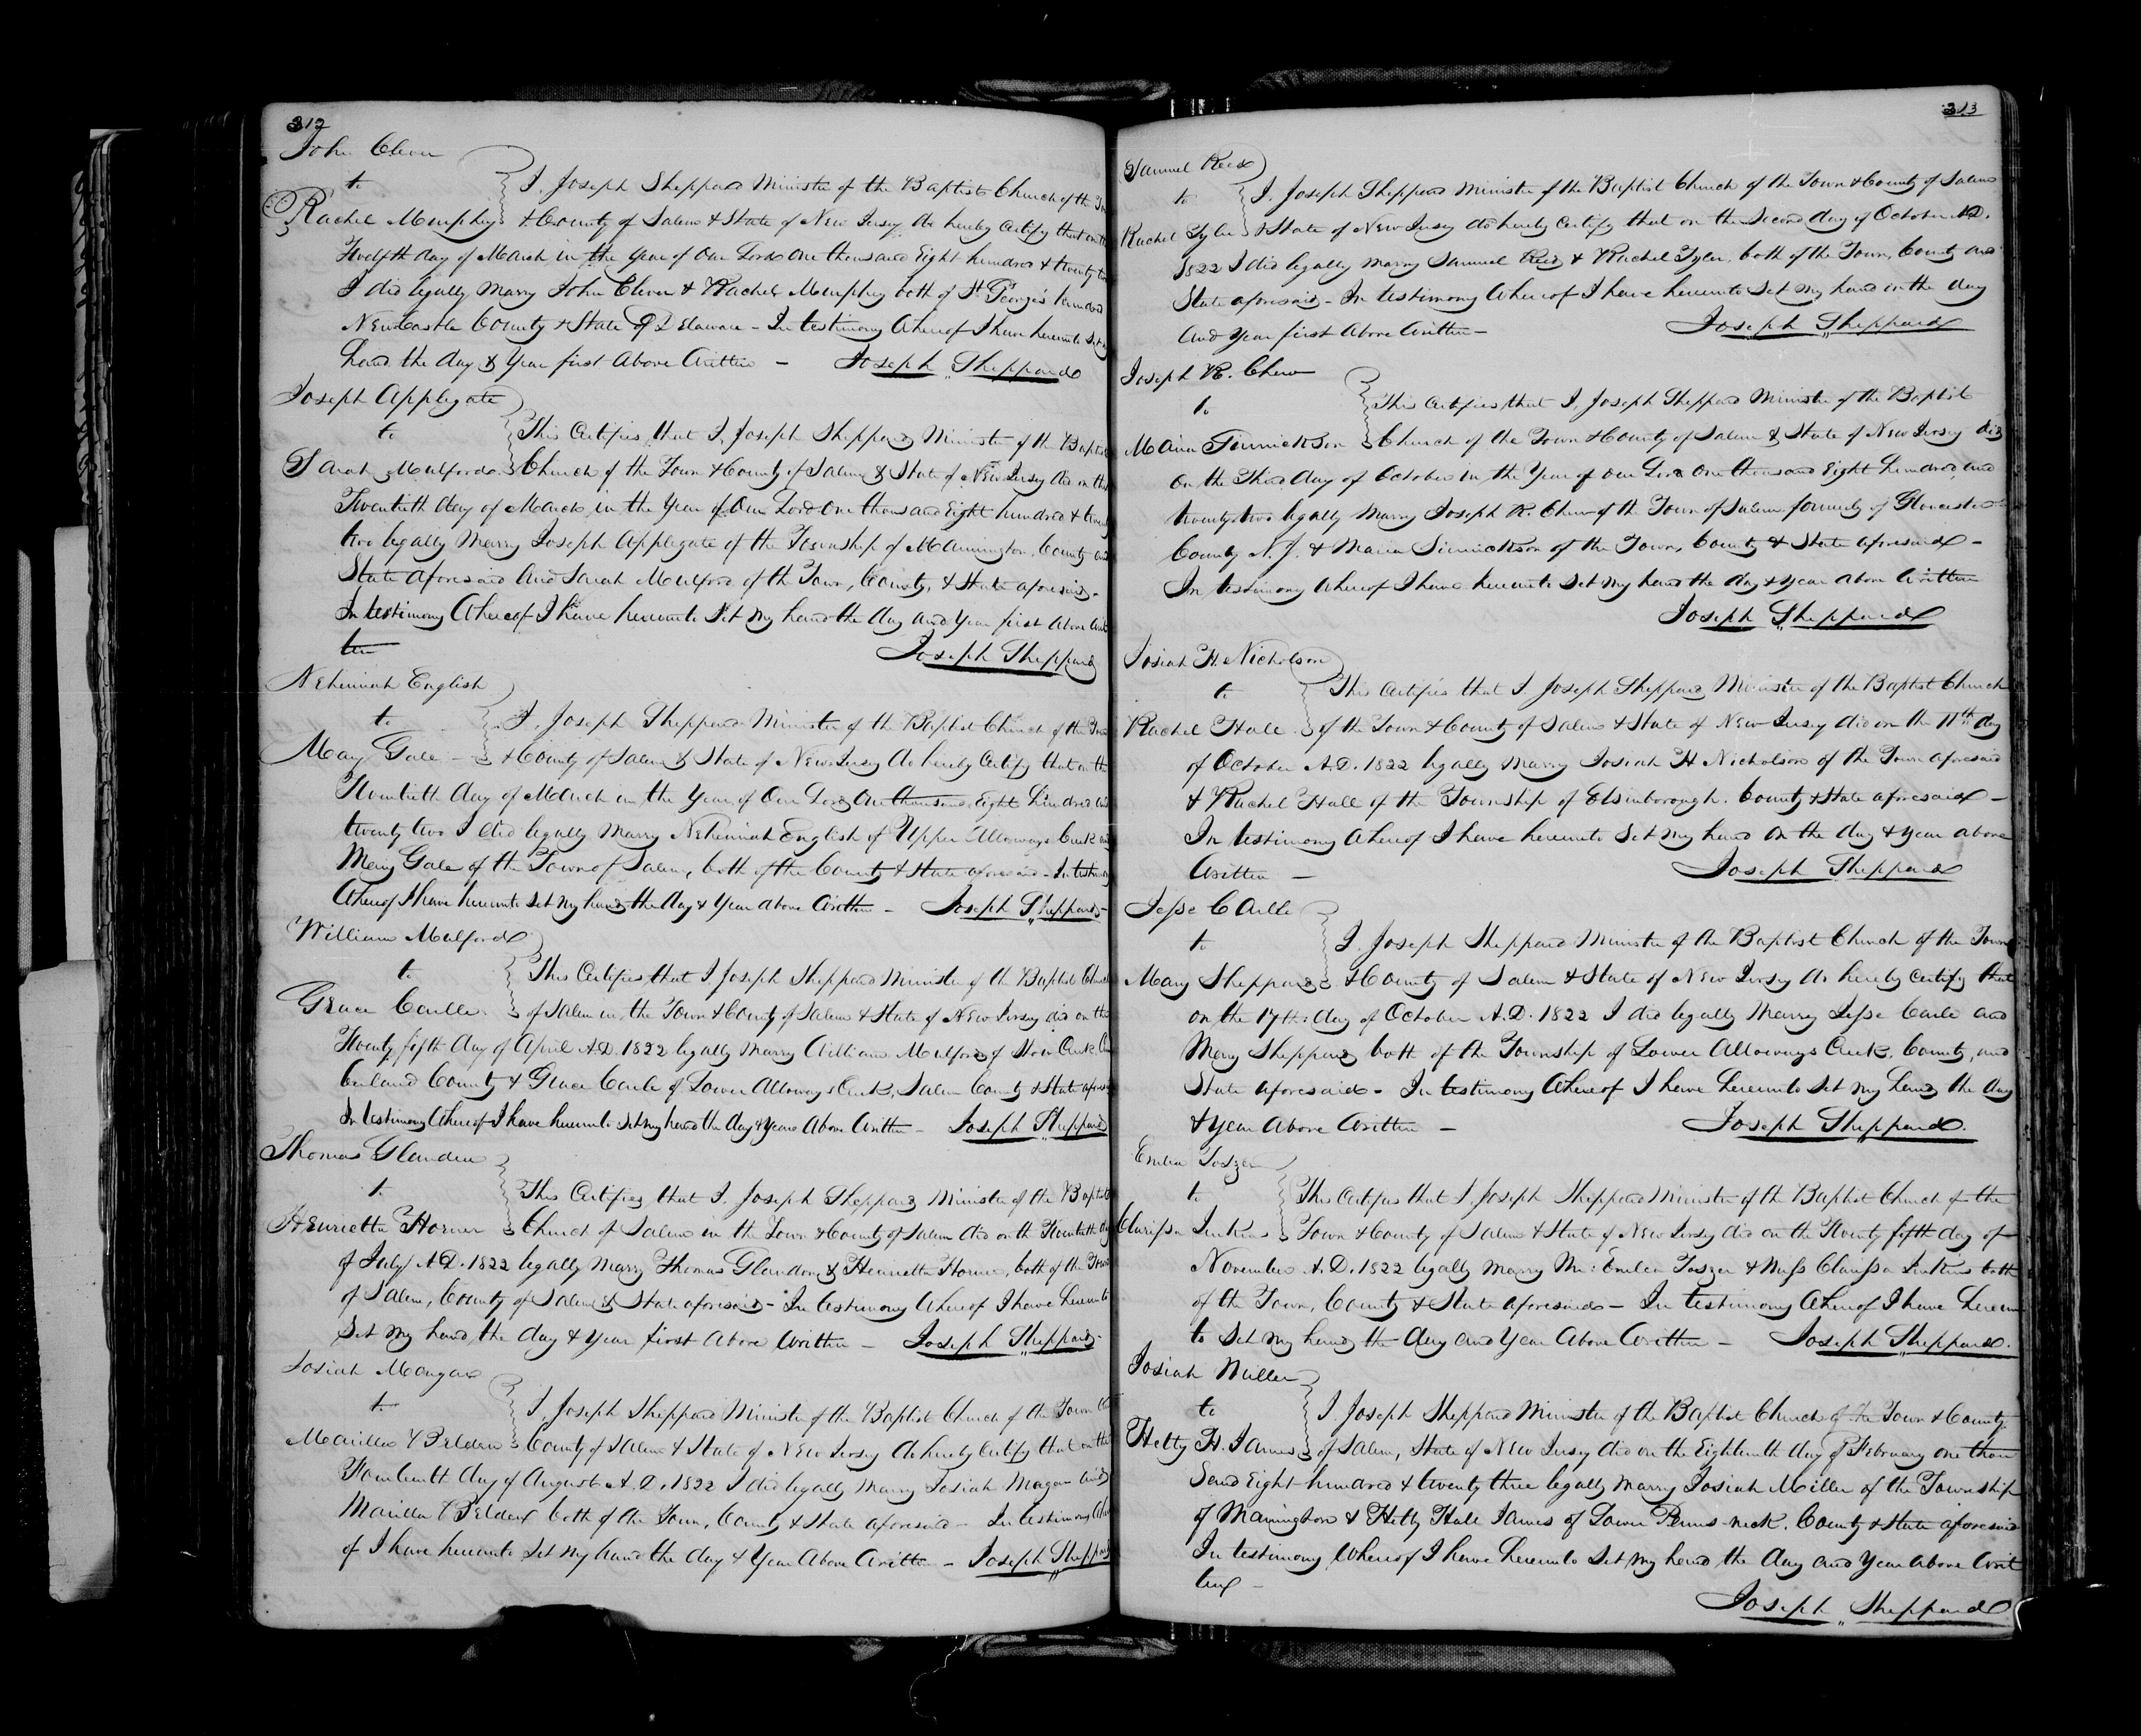 312
John Clever
to
I, Joseph Sheppard Minister of the Baptist Church of the
Rachel Murphey & County of Salem & State of New Jersey do hereby Certify that on the
Twelfth day of March in the year of our Lord One thousand Eight hundred & twenty two
I did legally Marry John Clever & Rachel Murphey both of St Georges hundred
New Castle County & State of Delaware - In testimony Whereof I have hereunto set my
hand the day & Year first Above Written - Joseph Sheppard
Joseph Applegate
to
This Certifies that I, Joseph Sheppard Minister of the Baptist
Sarah Mulford Church of the Town & County of Salem & State of New Jersey did on the
Twentieth day of March in the Year of Our Lord One thousand Eight hundred & twenty
two legally Marry Joseph Applegate of the Township of Mannington, County and
State aforesaid And Sarah Mulford of the Town, County, & State aforesaid -
In testimony Whereof I have hereunto Set my hand the day and year first above writ
ten Joseph Sheppard
Nehimiah English
to
I, Joseph Sheppard Minister of the Baptist Church of the
Mary Gale - & County of Salem & State of New Jersey do hereby Certify that on the
Twentieth day of March in the Year of Our Lord One thousand Eight hundred and
twenty two I did legally Marry Nehimiah English of Upper Alloways Creek and
Mary Gale of the Town of Salem, both of the County & State aforesaid - In testimony
Whereof I have hereunto set my hand the day & Year above Written - Joseph Sheppard
William Mulford
to
This Certifies that I Joseph Sheppard Minister of the Baptist Church
Grace Carlle of Salem in the Town & County of Salem & State of New Jersey did on the
Twenty fifth day of April A.D. 1822 legally Marry William Mulford of Stow Creek Cum
berland County & Grace Carle of Lower Alloways Creek, Salem County & State aforesaid
In testimony Whereof I have hereunto set my hand the day & Year Above Written - Joseph Sheppard
Thomas Glanden
to
This Certifies that I, Joseph Sheppard Minister of the Baptist
Henrietta Horner Church of Salem in the Town & County of Salem did on the Twentieth day
of July A.D. 1822 legally Marry Thomas Glanden & Henrietta Horner, both of the Town
of Salem, County of Salem & State aforesaid - In testimony Whereof I have hereunto
Set my hand, the day & year first above written - Joseph Sheppard
Josiah
to
I, Joseph Sheppard Minister of the Baptist Church of the Town &
Marilla Belden County of Salem & State of New Jersey do hereby Certify that on the
Fourteenth day of August A.D. 1822 I did legally Marry Josiah Magar and
Marilla Belden both of the Town, County & State aforesaid - In testimony Where
of I have hereunto Set my hand the day & Year Above Written - Joseph Sheppard
313
Samuel Reed
to
I, Joseph Sheppard Minister of the Baptist Church of the Town & County of Salem
Rachel Tyler & State of New Jersey do hereby Certify that on the Second day of October A.D.
1822 I did legally marry Samuel Reed & Rachel Tyler, both of the Town, County and
State aforesaid - In testimony Whereof I have hereunto set my hand on the day
and year first above Written - Joseph Sheppard
Joseph R. Chew
to
This Certifies that I, Joseph Sheppard Minister of the Baptist
Maria Sinnickson Church of the Town & County of Salem & State of New Jersey did
on the Third day of October in the Year of our Lord One thousand Eight hundred and
twenty two legally marry Joseph R. Chew of the Town of Salem formerly of Gloucester
County N.J. & Maria Sinnickson of the Town, County & State aforesaid -
In testimony whereof I have hereunto set my hand the day & year above written
Joseph Sheppard
Josiah H. Nicholson
to
This Certifies that I Joseph Sheppard Minister of the Baptist Church
Rachel Hall of the Town & County of Salem & State of New Jersey did on the 11th day
of October A.D. 1822 legally marry Josiah H Nicholson of the Town aforesaid
& Rachel Hall of the Township of Elsinborough, County & State aforesaid -
In testimony Whereof I have hereunto set my hand on the day & year above
Written - Joseph Sheppard
Jesse Carlle
to
I, Joseph Sheppard Minister of the Baptist Church of the Town
Mary Sheppard & County of Salem & State of New Jersey do hereby Certify that
on the 17th day of October A.D. 1822 I did legally Marry Jesse Carle and
Mary Sheppard both of the Township of Lower Alloways Creek, County, and
State aforesaid - In testimony Whereof I have hereunto set my hand the day
& year above written - Joseph Sheppard.
to
This Certifies that I Joseph Sheppard Minister of the Baptist Church of the
Clarissa Town & County of Salem & State of New Jersey did on the Twenty fifth day of
November A.D. 1822 legally marry Mr. & Miss Clarissa both
of the Town, County & State aforesaid - In testimony Whereof I have hereun
to set my hand the day and year above written - Joseph Sheppard.
Josiah Miller
to
I, Joseph Sheppard Minister of the Baptist Church of the Town & County
Hetty H. James of Salem, State of New Jersey did on the Eighteenth day of February one thou
sand Eight hundred & twenty three legally marry Josiah Miller of the Township
of Mannington & Hetty Hall James of Lower Penns-neck, County & State aforesaid
In testimony Whereof I have hereunto set my hand the day and year above writ
ten -
Joseph Sheppard